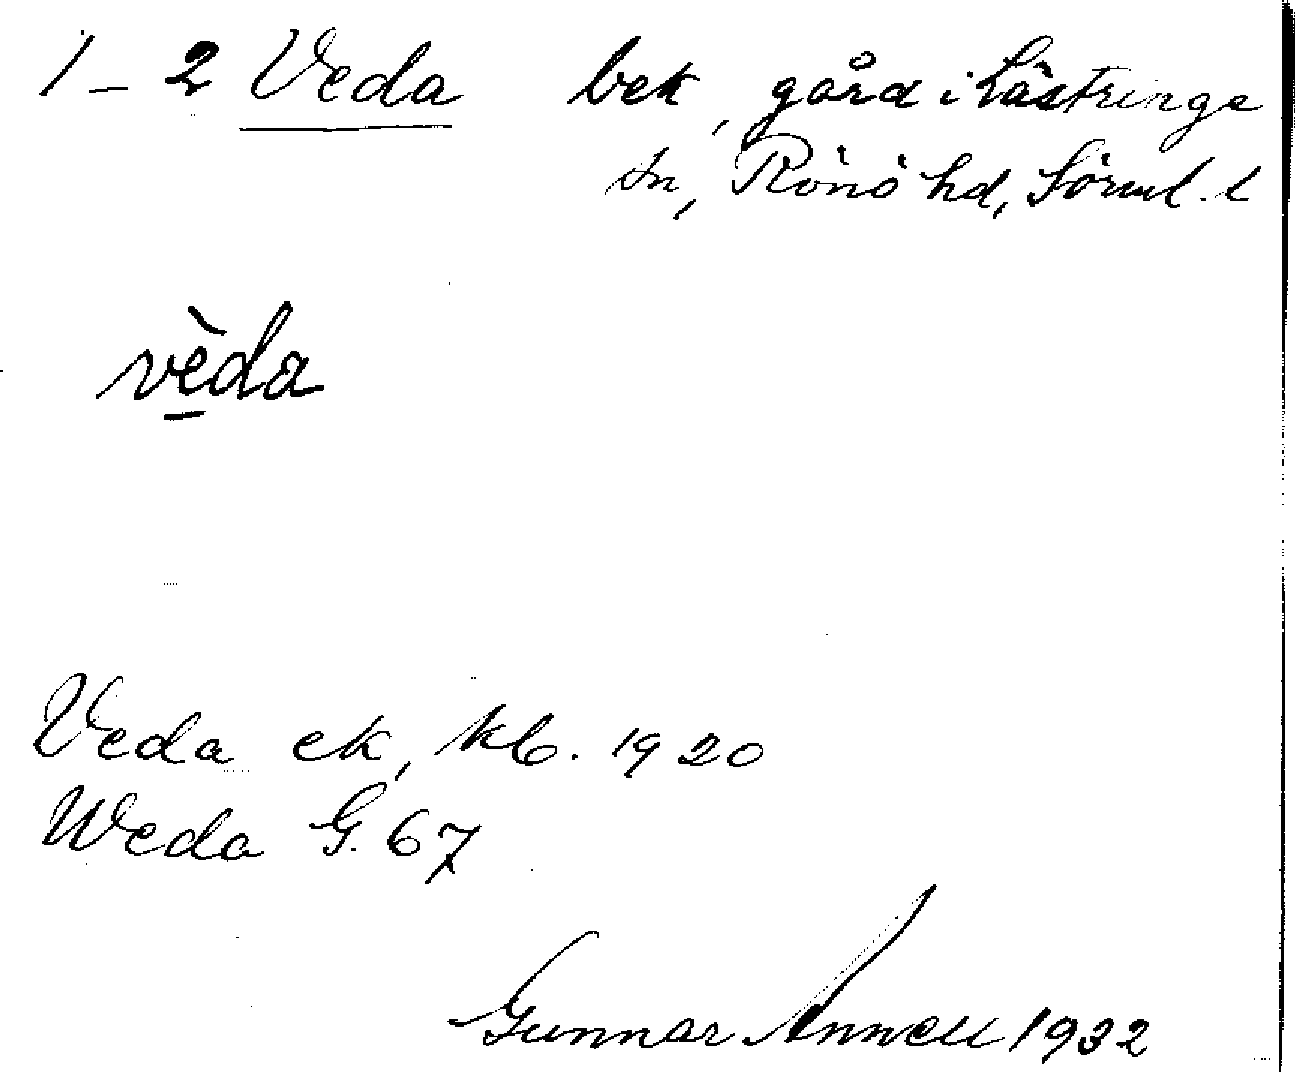 1-2 Veda bek, gård i Lästringe
sn, Rönö hd, Sörml. l
vèda
Veda ek, kb. 1920
Weda G. 67
Gunnar Annell 1932